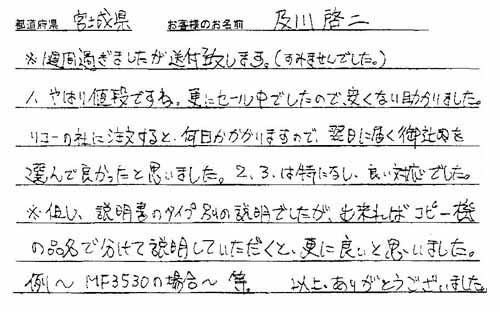 都道府県 宮城県 お客様のお名前 及川啓二
※1週間過ぎましたが送付致します。(すみませんでした。)
1、やはり値段ですね。更にセール中でしたので、安くない助かりました。
リコーの社に注文すると、何日かかかりますので、翌日に届く御社を
選んで良かったと思いました。2、3、は特になし、良い対応でした。
※但し、説明書のタイプ別の説明でしたが、出来ればコピー機
の品名で分けて説明していただくと、更に良いと思いました。
例〜MF3530の場合〜等。 以上、ありがとうございました。